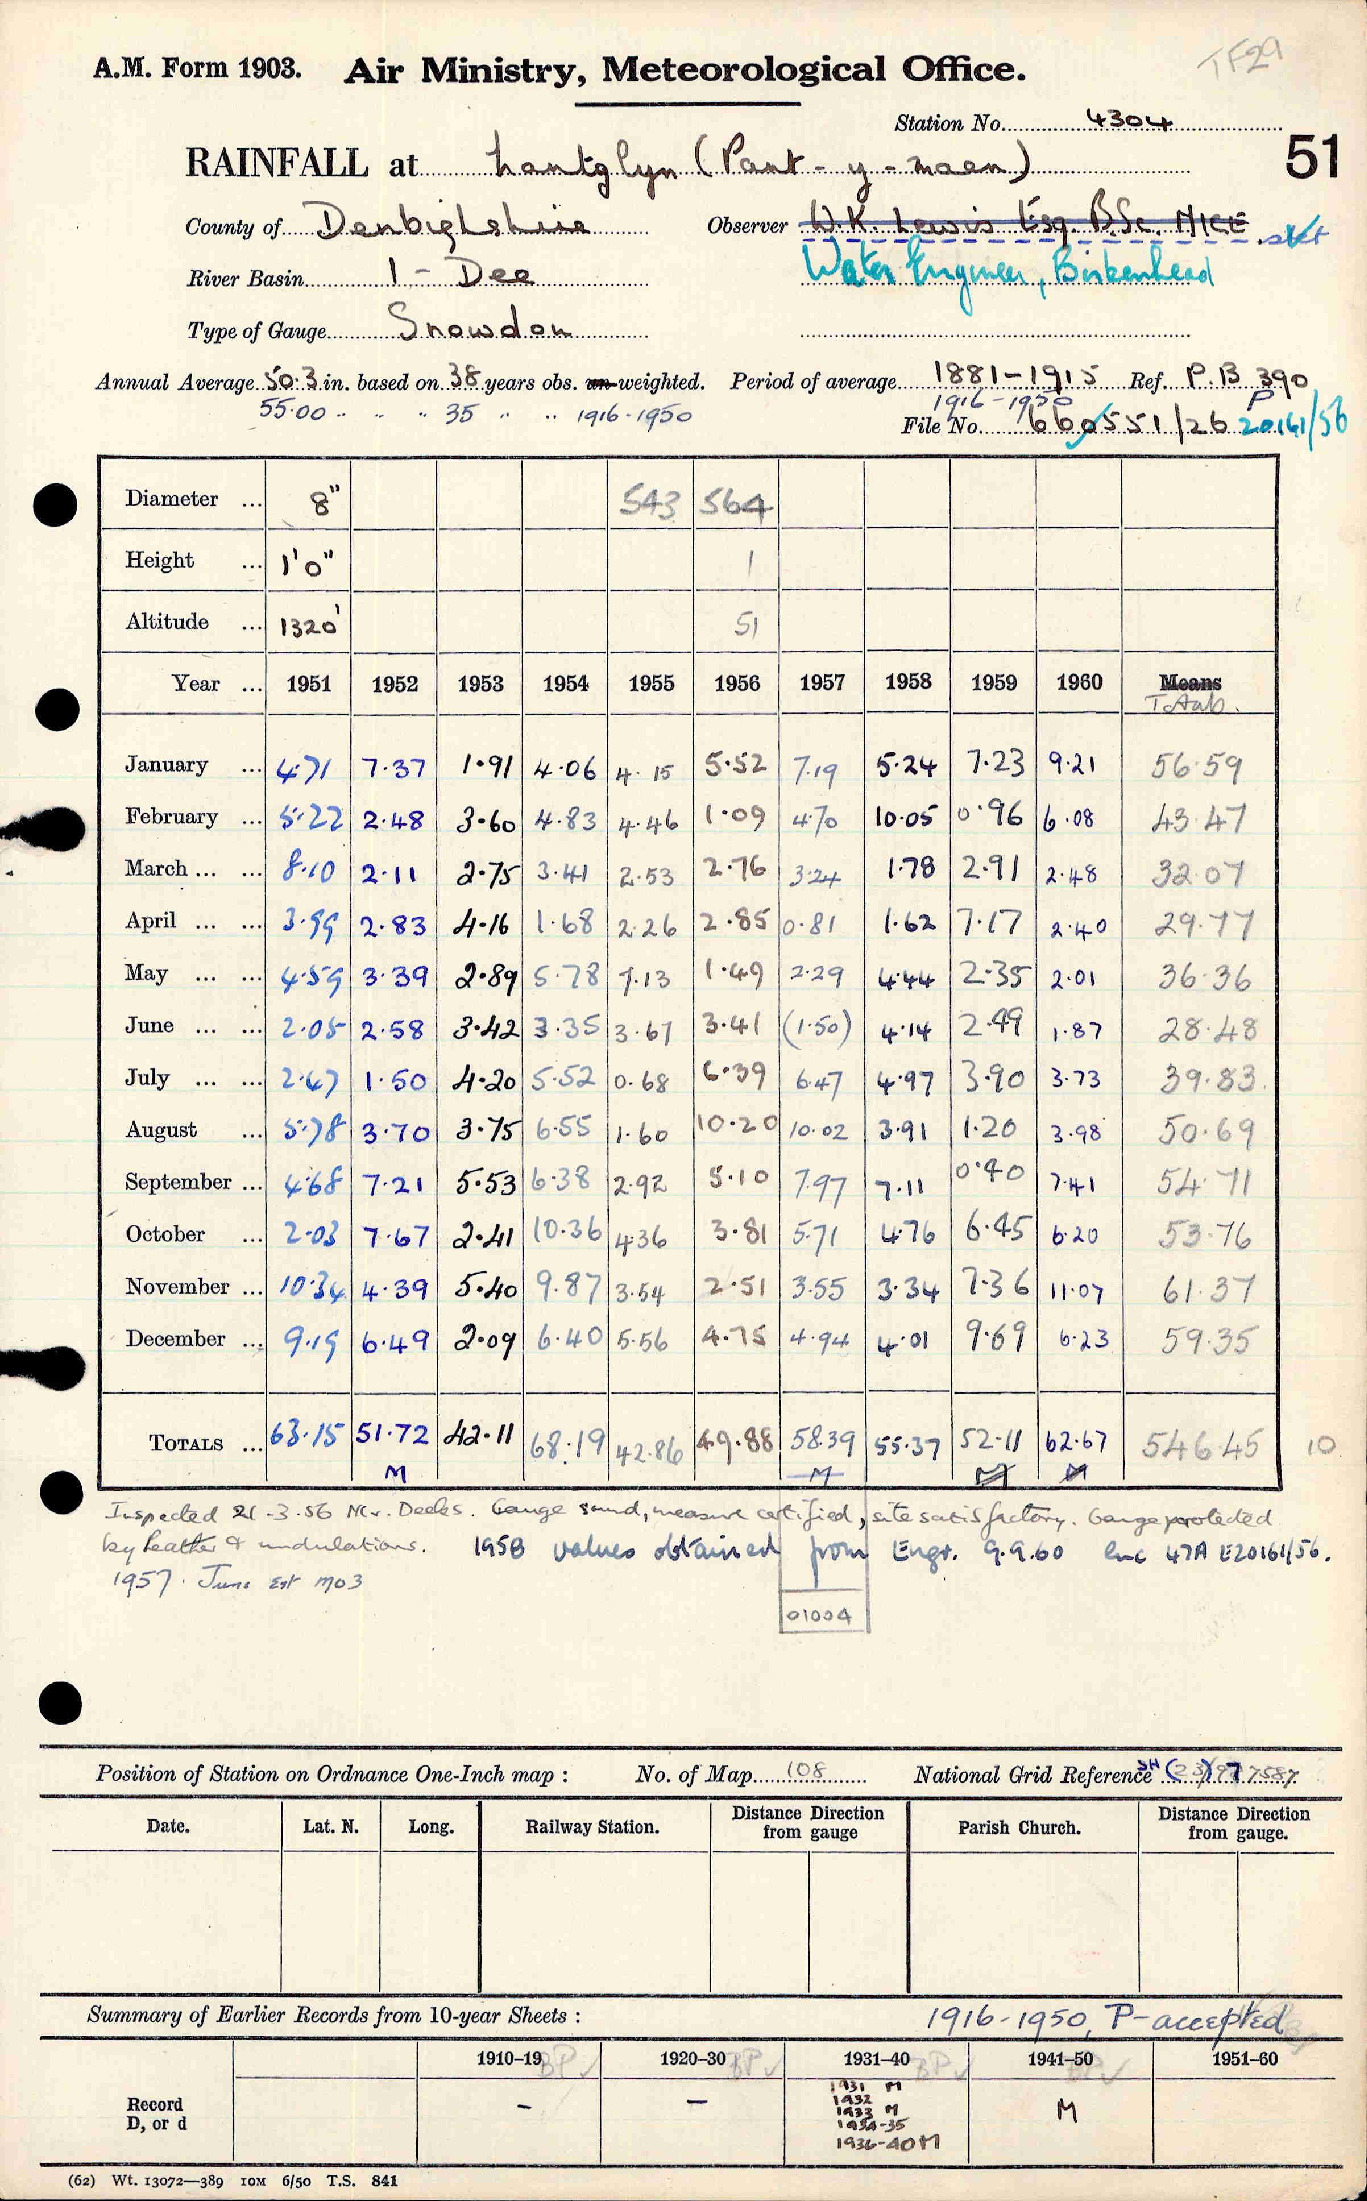 TF29
A.M. Form 1903. Air Ministry, Meteorological Office.
Station No. 4304
51
RAINFALL at Llantglyn (Pant-y-maen)
County of Denbighshire Observer W.K. Lewis Esq. B.Sc. MICE
River Basin 1 - Dee Water Engineer, Birkenhead
Type of Gauge Snowdon
Annual Average 50.3 in. based on 38 years obs. un-weighted. Period of average 1881-1915 Ref. P.B 390
55.00 .. " " 35 " .. 1916-1950 1916-1950 P
File No. 660551/26 20161/56
Diameter ... 8" 543 564
Height ... 1'0" 1
Altitude ... 1320' 51
Year ... 1951 1952 1953 1954 1955 1956 1957 1958 1959 1960 Means
Totals.
January ... 4.71 7.37 1.91 4.06 4.15 5.52 7.19 5.24 7.23 9.21 56.59
February ... 5.22 2.48 3.60 4.83 4.46 1.09 4.70 10.05 0.96 6.08 43.47
March ... ... 8.10 2.11 2.75 3.41 2.53 2.76 3.24 1.78 2.91 2.48 32.07
April ... ... 3.99 2.83 4.16 1.68 2.26 2.85 0.81 1.62 7.17 2.40 29.77
May ... ... 4.59 3.39 2.89 5.78 7.13 1.49 2.29 4.44 2.35 2.01 36.36
June ... ... 2.05 2.58 3.42 3.35 3.67 3.41 (1.50) 4.14 2.49 1.87 28.48
July ... ... 2.47 1.50 4.20 5.52 0.68 6.39 6.47 4.97 3.90 3.73 39.83
August ... 5.78 3.70 3.75 6.55 1.60 10.20 10.02 3.91 1.20 3.98 50.69
September ... 4.68 7.21 5.53 6.38 2.92 5.10 7.97 7.11 0.40 7.41 54.71
October ... 2.03 7.67 2.41 10.36 4.36 3.81 5.71 4.76 6.45 6.20 53.76
November ... 10.34 4.39 5.40 9.87 3.54 2.51 3.55 3.34 7.36 11.07 61.37
December ... 9.19 6.49 2.09 6.40 5.56 4.75 4.94 4.01 9.69 6.23 59.35
TOTALS ... 63.15 51.72 42.11 68.19 42.86 49.88 58.39 55.37 52.11 62.67 546.45 10
M M M M
Inspected 21.3.56 Mr. Deeks. Gauge sound, measure certified, site satisfactory. Gauge protected
by heather & undulations. 1958 values obtained from Engr. 9.9.60 Enc 47A E20161/56.
1957. June Est mo3
01004
Position of Station on Ordnance One-Inch map : No. of Map 108 National Grid Reference SH (23) 977587
Date. Lat. N. Long. Railway Station. Distance Direction from gauge Parish Church. Distance Direction from gauge.
Summary of Earlier Records from 10-year Sheets : 1916-1950, P-accepted
1910–19 BP ✓ 1920–30 BP ✓ 1931–40 BP ✓ 1941–50 BP ✓ 1951–60
Record D, or d - - 1931 M M
1932
1933 M
1934-35
1936-40 M
(62) Wt. 13072—389 10M 6/50 T.S. 841